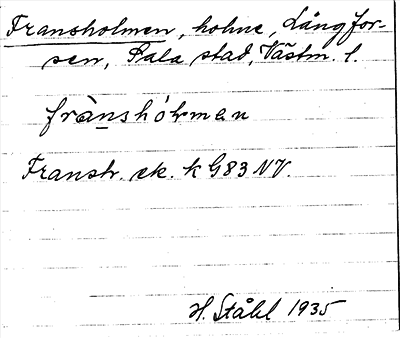 Fransholmen, holme, Långfor-
sen, Sala stad, Västm. l.
frànshól̵men
Franstr. ek. k G83 NV.
H. Ståhl 1935